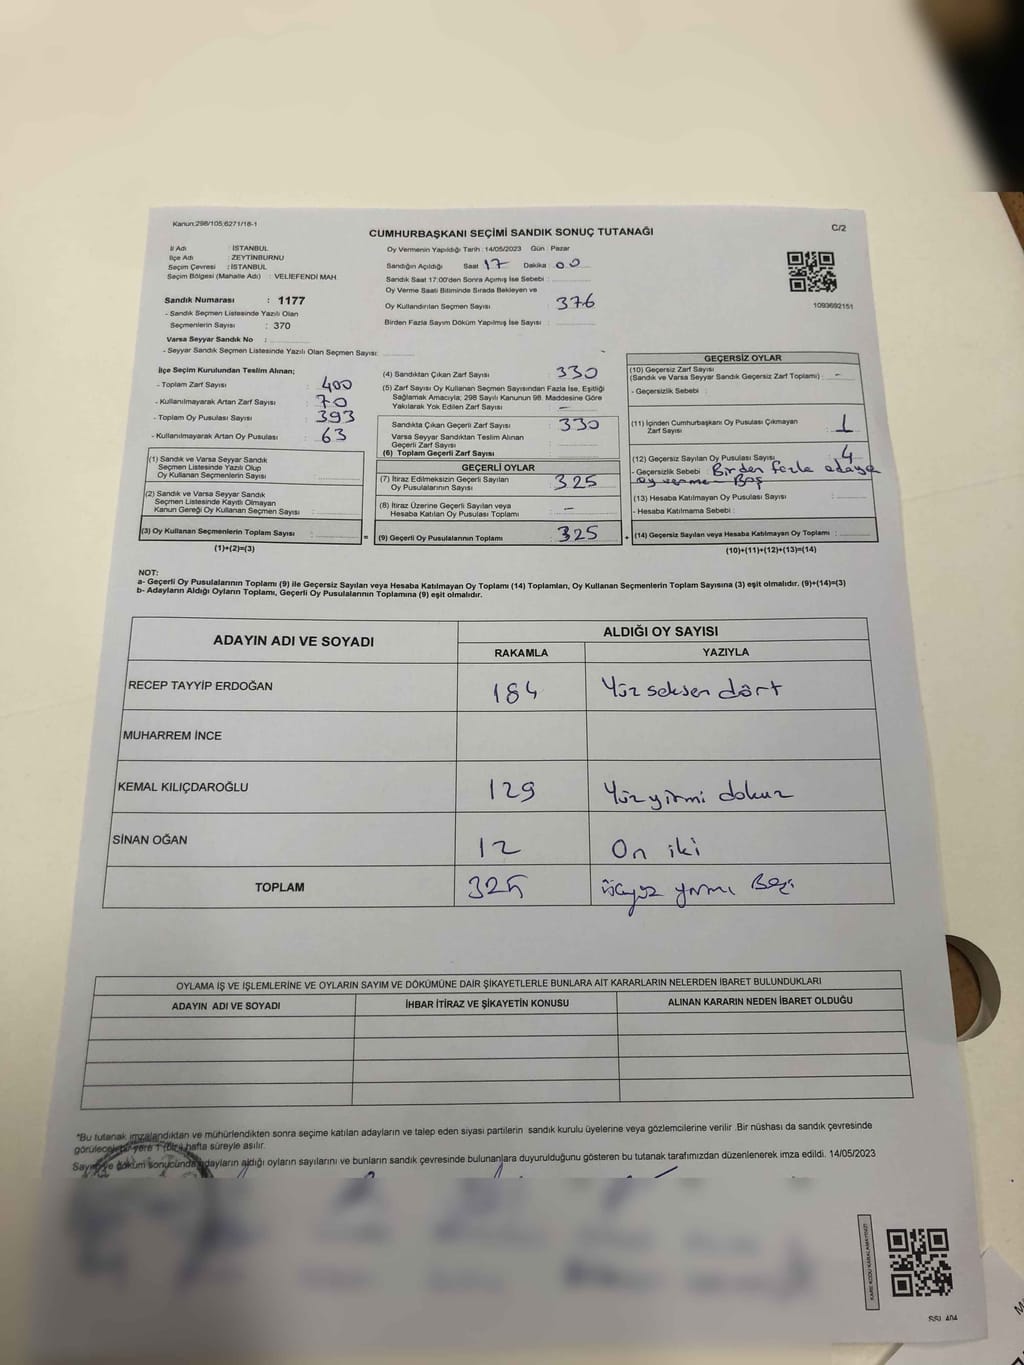 Kanun:298/105;6271/18-1
C/2
CUMHURBAŞKANI SEÇİMİ SANDIK SONUÇ TUTANAĞI
İl Adı : İSTANBUL
İlçe Adı : ZEYTİNBURNU
Seçim Çevresi : İSTANBUL
Seçim Bölgesi (Mahalle Adı) : VELİEFENDİ MAH.
Sandık Numarası : 1177
- Sandık Seçmen Listesinde Yazılı Olan
Seçmenlerin Sayısı : 370
Varsa Seyyar Sandık No :
- Seyyar Sandık Seçmen Listesinde Yazılı Olan Seçmen Sayısı:
Oy Vermenin Yapıldığı Tarih :14/05/2023 Gün : Pazar
Sandığın Açıldığı Saat 17 Dakika : 00
Sandık Saat 17:00'den Sonra Açımış İse Sebebi :
Oy Verme Saati Bitiminde Sırada Bekleyen ve
Oy Kullandırılan Seçmen Sayısı : 376
Birden Fazla Sayım Döküm Yapılmış İse Sayısı :
1093692151
İlçe Seçim Kurulundan Teslim Alınan;
- Toplam Zarf Sayısı : 400
- Kullanılmayarak Artan Zarf Sayısı : 70
- Toplam Oy Pusulası Sayısı : 393
- Kullanılmayarak Artan Oy Pusulası : 63
(1) Sandık ve Varsa Seyyar Sandık
Seçmen Listesinde Yazılı Olup
Oy Kullanan Seçmenlerin Sayısı :
(2) Sandık ve Varsa Seyyar Sandık
Seçmen Listesinde Kayıtlı Olmayan
Kanun Gereği Oy Kullanan Seçmen Sayısı :
(3) Oy Kullanan Seçmenlerin Toplam Sayısı :
(1)+(2)=(3)
=
(4) Sandıktan Çıkan Zarf Sayısı : 330
(5) Zarf Sayısı Oy Kullanan Seçmen Sayısından Fazla İse, Eşitliği
Sağlamak Amacıyla; 298 Sayılı Kanunun 98. Maddesine Göre
Yakılarak Yok Edilen Zarf Sayısı : –
Sandıkta Çıkan Geçerli Zarf Sayısı : 330
Varsa Seyyar Sandıktan Teslim Alınan
Geçerli Zarf Sayısı :
(6) Toplam Geçerli Zarf Sayısı :
GEÇERLİ OYLAR
(7) İtiraz Edilmeksizin Geçerli Sayılan
Oy Pusulalarının Sayısı : 325
(8) İtiraz Üzerine Geçerli Sayılan veya
Hesaba Katılan Oy Pusulası Toplamı : –
(9) Geçerli Oy Pusulalarının Toplamı : 325
+
GEÇERSİZ OYLAR
(10) Geçersiz Zarf Sayısı
(Sandık ve Varsa Seyyar Sandık Geçersiz Zarf Toplamı) : -
- Geçersizlik Sebebi :
(11) İçinden Cumhurbaşkanı Oy Pusulası Çıkmayan
Zarf Sayısı : 1
(12) Geçersiz Sayılan Oy Pusulası Sayısı : 4
- Geçersizlik Sebebi : Birden fazla adaya
oy verme – Boş
(13) Hesaba Katılmayan Oy Pusulası Sayısı :
- Hesaba Katılmama Sebebi :
(14) Geçersiz Sayılan veya Hesaba Katılmayan Oy Toplamı :
(10)+(11)+(12)+(13)=(14)
NOT:
a- Geçerli Oy Pusulalarının Toplamı (9) ile Geçersiz Sayılan veya Hesaba Katılmayan Oy Toplamı (14) Toplamları, Oy Kullanan Seçmenlerin Toplam Sayısına (3) eşit olmalıdır. (9)+(14)=(3)
b- Adayların Aldığı Oyların Toplamı, Geçerli Oy Pusulalarının Toplamına (9) eşit olmalıdır.
ADAYIN ADI VE SOYADI
ALDIĞI OY SAYISI
RAKAMLA YAZIYLA
RECEP TAYYİP ERDOĞAN 184 Yüz seksen dört
MUHARREM İNCE
KEMAL KILIÇDAROĞLU 129 Yüz yirmi dokuz
SİNAN OĞAN 12 On iki
TOPLAM 325 üçyüz yirmi Beş
OYLAMA İŞ VE İŞLEMLERİNE VE OYLARIN SAYIM VE DÖKÜMÜNE DAİR ŞİKAYETLERLE BUNLARA AİT KARARLARIN NELERDEN İBARET BULUNDUKLARI
ADAYIN ADI VE SOYADI İHBAR İTİRAZ VE ŞİKAYETİN KONUSU ALINAN KARARIN NEDEN İBARET OLDUĞU
*Bu tutanak imzalandıktan ve mühürlendikten sonra seçime katılan adayların ve talep eden siyasi partilerin sandık kurulu üyelerine veya gözlemcilerine verilir .Bir nüshası da sandık çevresinde
görülecek bir yere 1 (bir) hafta süreyle asılır.
Sayım ve döküm sonucunda adayların aldığı oyların sayılarını ve bunların sandık çevresinde bulunanlara duyurulduğunu gösteren bu tutanak tarafımızdan düzenlenerek imza edildi. 14/05/2023
KARE KODU KARALAMAYINIZ!